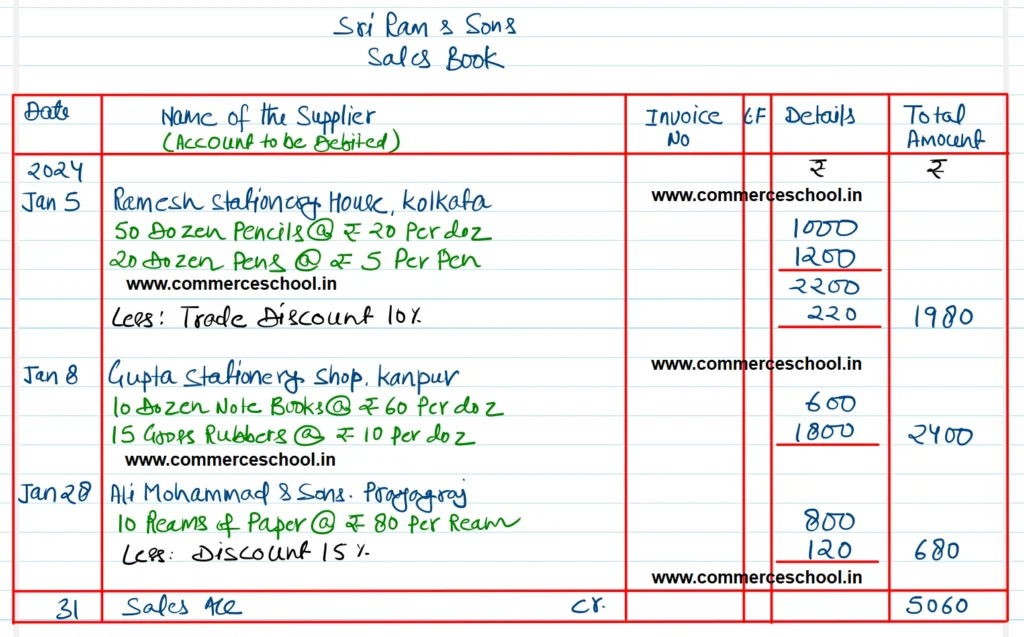 Sri Ram & Sons
Sales Book
Date Name of the Supplier Invoice No L.F Details Total Amount
(Account to be Debited)
2024 ₹ ₹
Jan 5 Ramesh Stationery House, Kolkata www.commerceschool.in
50 Dozen Pencils @ ₹ 20 Per doz 1000
20 Dozen Pens @ ₹ 5 Per Pen 1200
www.commerceschool.in 2200
Less: Trade Discount 10% 220 1980
www.commerceschool.in
Jan 8 Gupta Stationery Shop, Kanpur
10 Dozen Note Books @ ₹ 60 Per doz 600
15 Gross Rubbers @ ₹ 10 Per doz 1800 2400
www.commerceschool.in
Jan 28 Ali Mohammad & Sons. Prayagraj
10 Reams of Paper @ ₹ 80 Per Ream 800
Less: Discount 15% 120 680
www.commerceschool.in
31 Sales A/c Cr. 5060